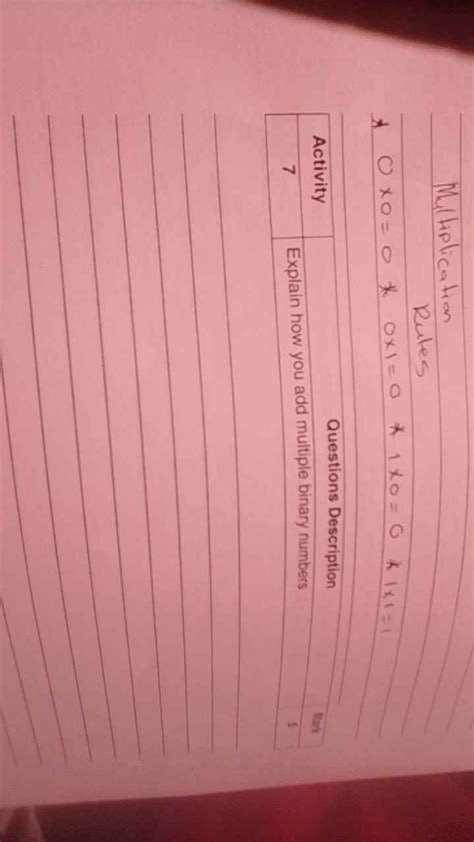 Multiplication
Rules
* 0 x 0 = 0 * 0x1 = 0 * 1 x 0 = 0 * 1x1 = 1
Questions Description
Mark
Activity
7
Explain how you add multiple binary numbers
5